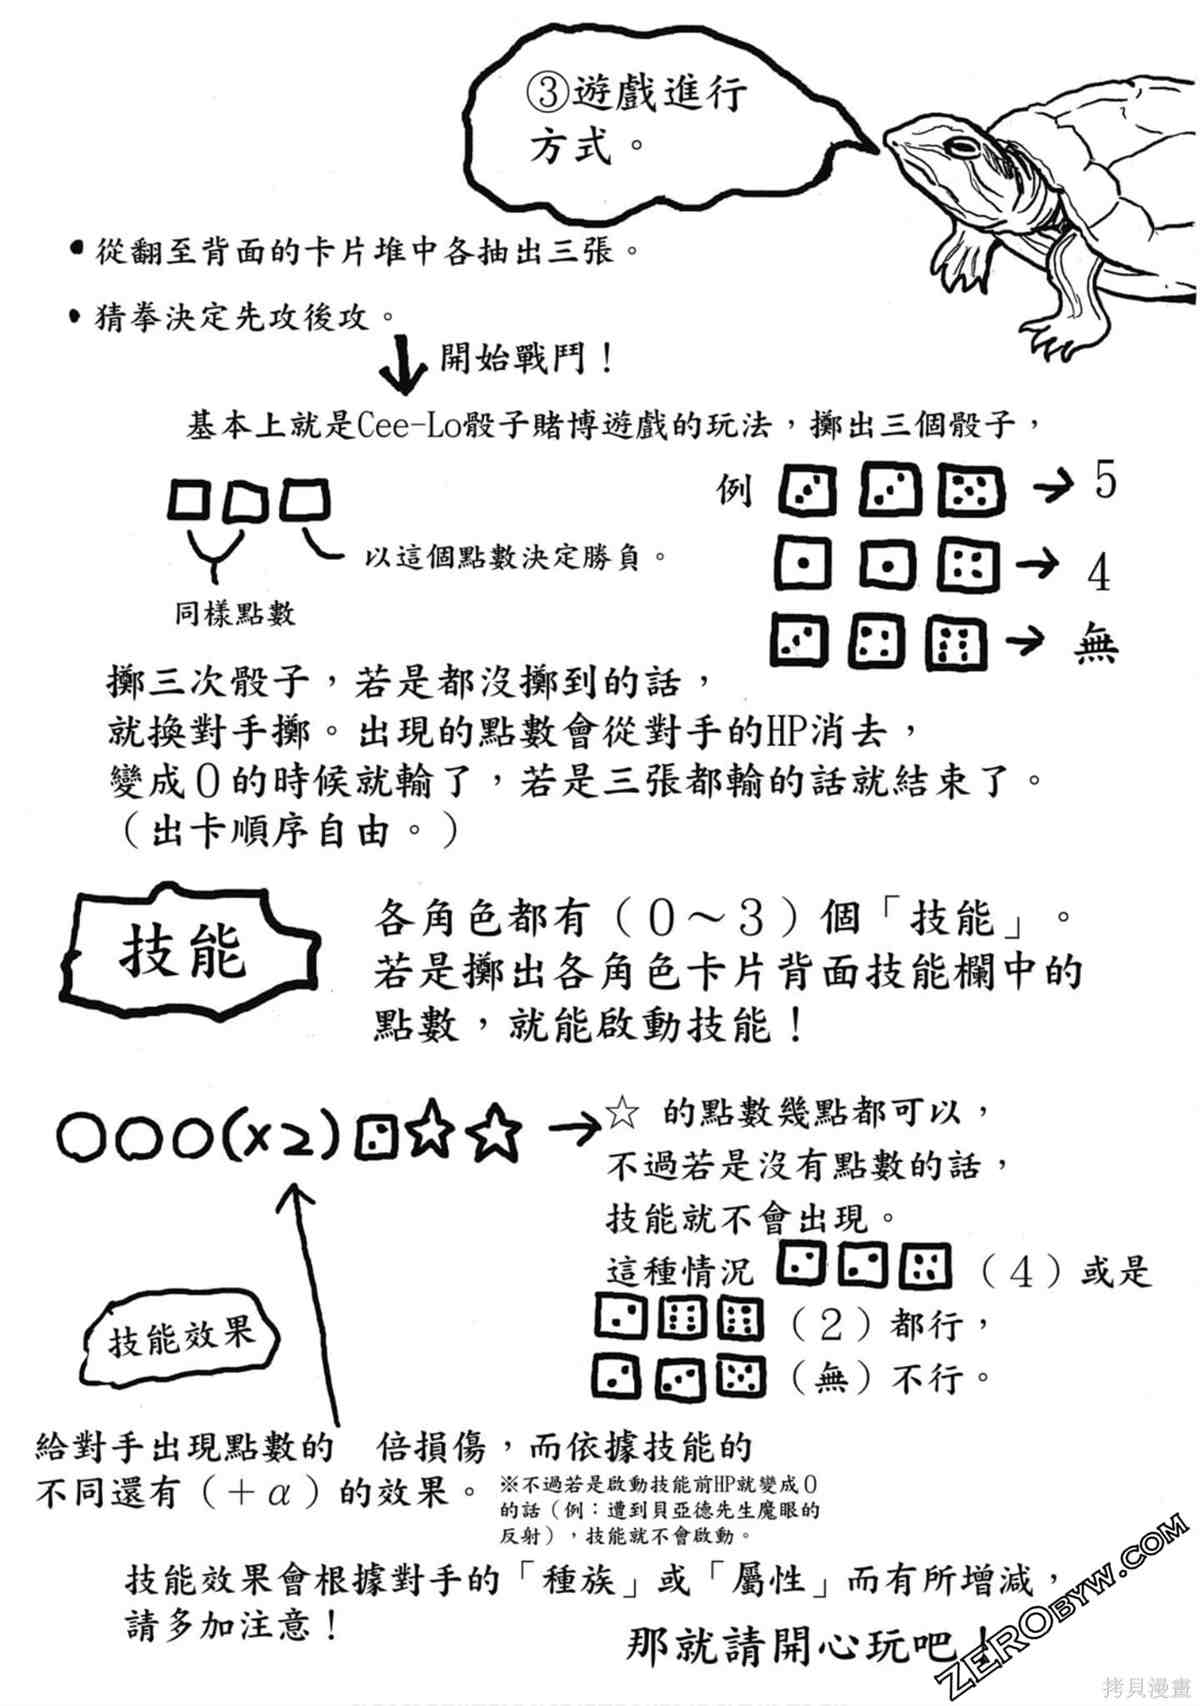 ③遊戲進行
方式。
•從翻至背面的卡片堆中各抽出三張。
•猜拳決定先攻後攻。
開始戰鬥！
基本上就是Cee-Lo骰子賭博遊戲的玩法，擲出三個骰子，
例 → 5
→ 4
→ 無
以這個點數決定勝負。
同樣點數
擲三次骰子，若是都沒擲到的話，
就換對手擲。出現的點數會從對手的HP消去，
變成０的時候就輸了，若是三張都輸的話就結束了。
（出卡順序自由。）
技能
各角色都有（０～３）個「技能」。
若是擲出各角色卡片背面技能欄中的
點數，就能啟動技能！
○○○(×2)☆☆→☆ 的點數幾點都可以，
不過若是沒有點數的話，
技能就不會出現。
這種情況（４）或是
（２）都行，
（無）不行。
技能效果
給對手出現點數的 倍損傷，而依據技能的
不同還有（＋α）的效果。
※不過若是啟動技能前HP就變成０
的話（例：遭到貝亞德先生魔眼的
反射），技能就不會啟動。
技能效果會根據對手的「種族」或「屬性」而有所增減，
請多加注意！
那就請開心玩吧！
ZEROBYW.COM
拷貝漫畫